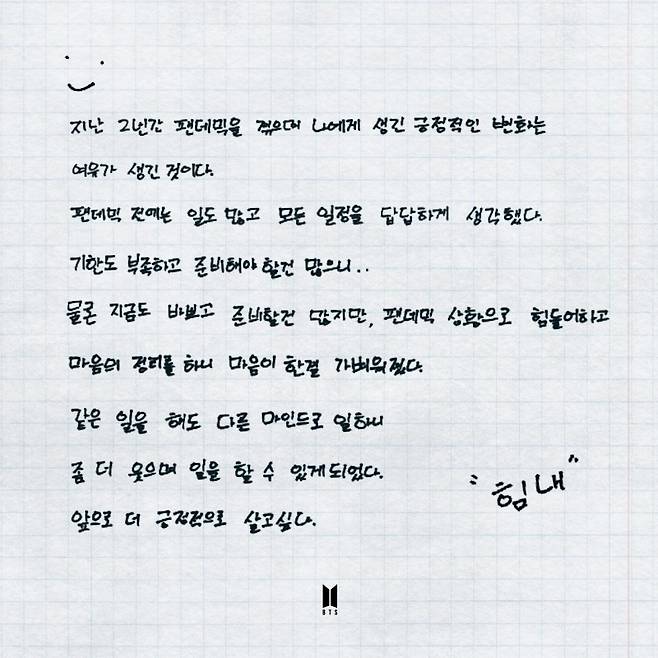 지난 2년간 팬데믹을 겪으며 나에게 생긴 긍정적인 변화는
여유가 생긴 것이다.
팬데믹 전에는 일도 많고 모든 일정을 답답하게 생각했다.
기한도 부족하고 준비해야 할건 많으니..
물론 지금도 바쁘고 준비할건 많지만, 팬데믹 상황으로 힘들어하고
마음의 정리를 하니 마음이 한결 가벼워졌다.
같은 일을 해도 다른 마인드로 일하니
좀 더 웃으며 일을 할 수 있게되었다.
앞으로 더 긍정적으로 살고싶다.
"힘내"
BTS